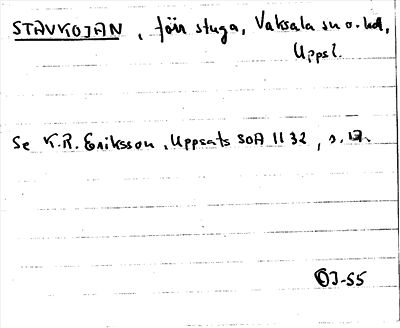 STAVKOJAN, förr stuga, Vaksala sn o. hd,
Uppsl.
Se K.R. Eriksson, Uppsats SOA 1132, s. 17.
OJ-55